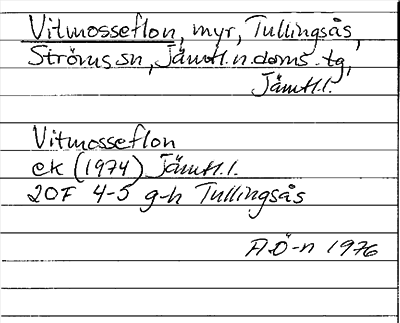 Vitmosseflon, myr, Tullingsås,
Ströms sn, Jämtl. n. doms. tg,
Jämtl.l.
Vitmosseflon
ek (1974) Jämtl.l.
20F 4-5 g-h Tullingsås
A.Ö-n 1976